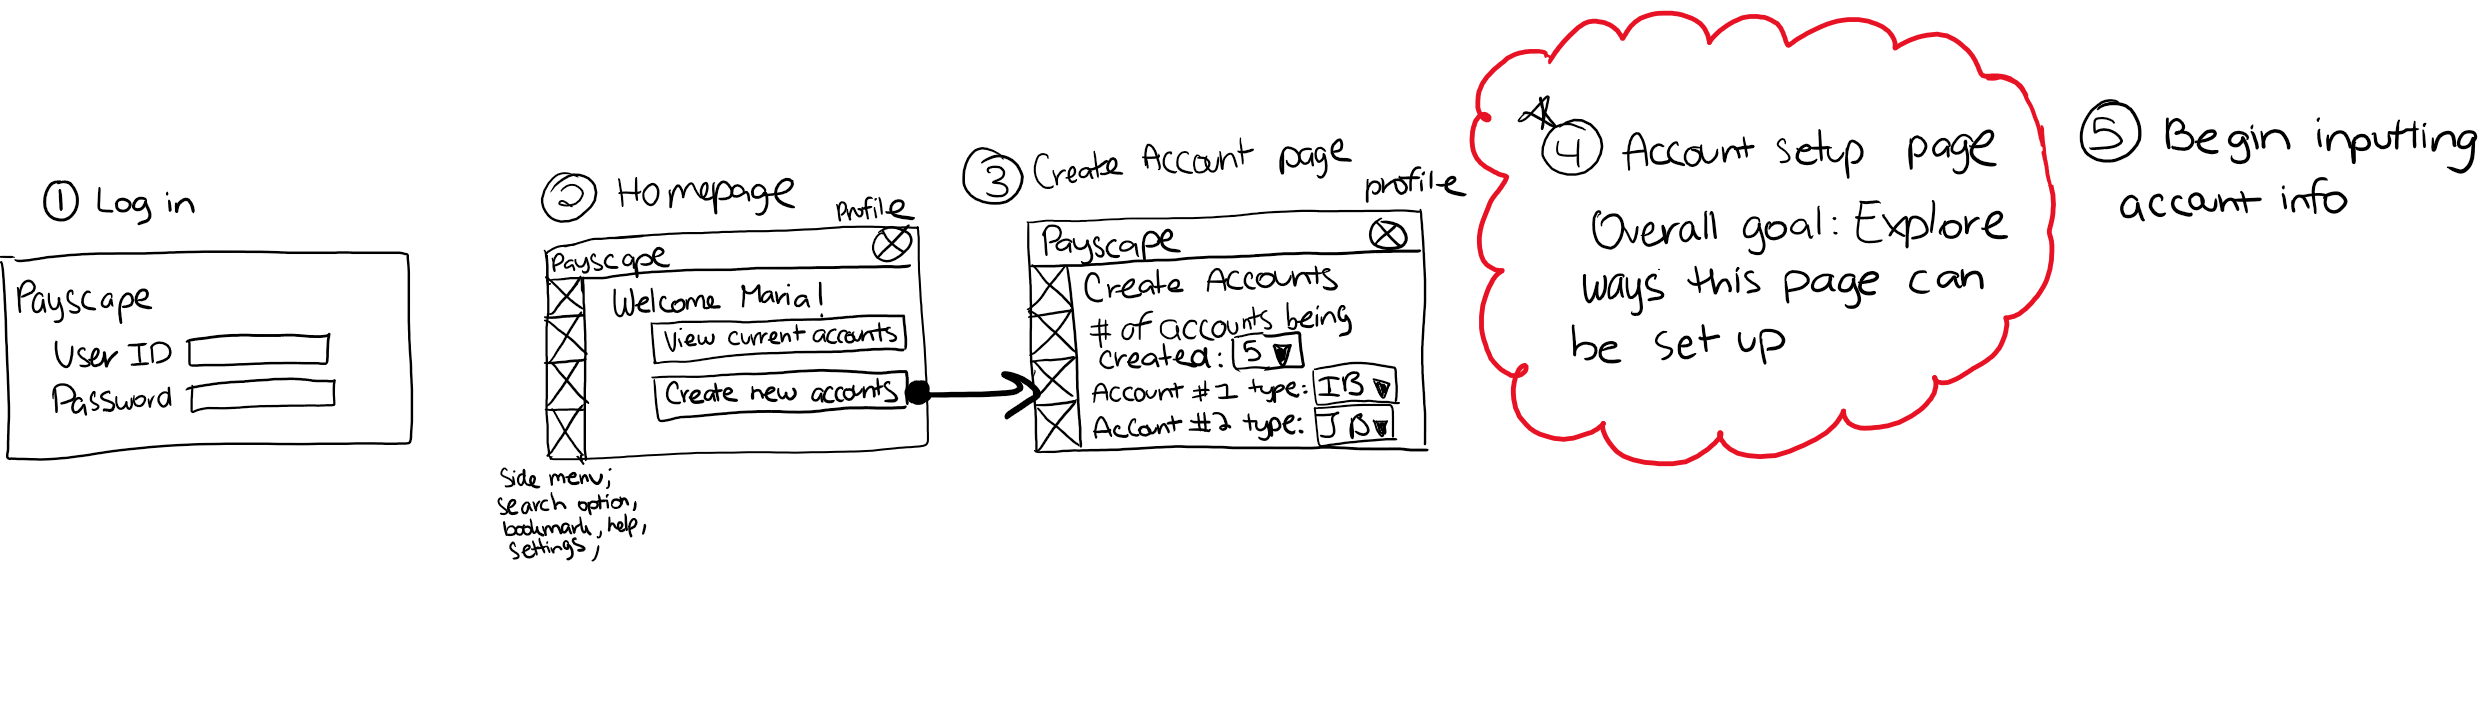 1 Log in
Payscape
User ID
Password
2 Homepage
profile
Payscape
Welcome Maria!
View current accounts
Create new accounts
Side menu;
search option,
bookmark, help,
settings,
3 Create Account page
profile
Payscape
Create Accounts
# of accounts being
created: 5
Account #1 type: IB
Account #2 type: JB
4 Account setup page
Overall goal: Explore
ways this page can
be set up
5 Begin inputting
account info